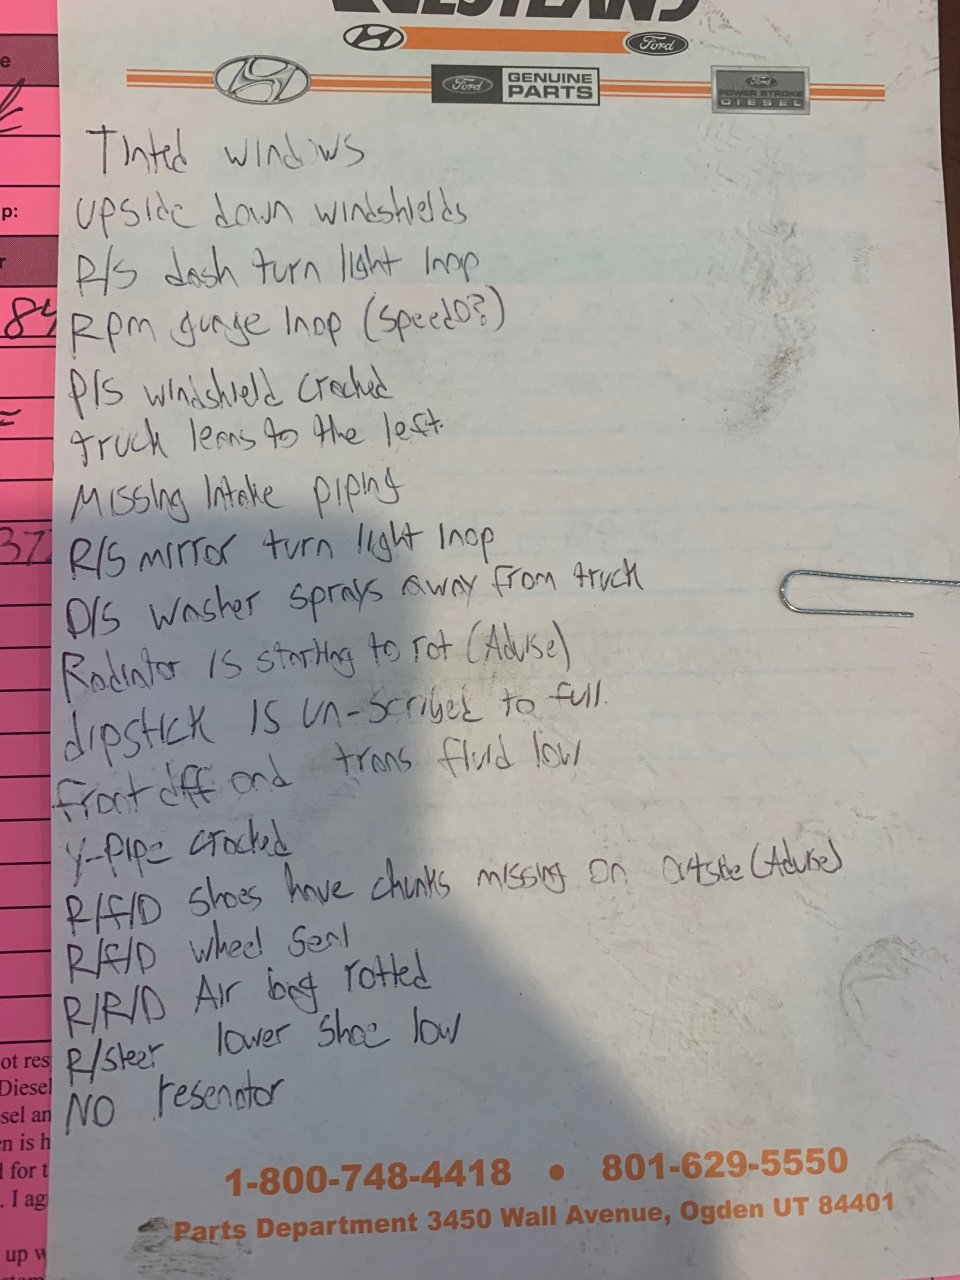 Ford
Ford
GENUINE
PARTS
Ford
POWER STROKE
DIESEL
Tinted windiws
upside down windshields
R/S dash turn light Inop
Rpm gunge Inop (speedo?)
P/S windshield cracked
truck leans to the left.
Missing Intake piping
R/S mirror turn light Inop
D/S washer sprays away from truck
Radiator is starting to rot (Advise)
dipstick is un-scribed to full.
front diff and trans fluid low
Y-pipe cracked
R/f/D shoes have chunks missing on outside (Advise)
R/f/D wheel seal
R/R/D Air bag rotted
R/steer lower shoe low
NO resenator
1-800-748-4418 • 801-629-5550
Parts Department 3450 Wall Avenue, Ogden UT 84401
e
p:
r
84
37
ot res
Diesel
sel an
en is h
d for t
. I ag
up w